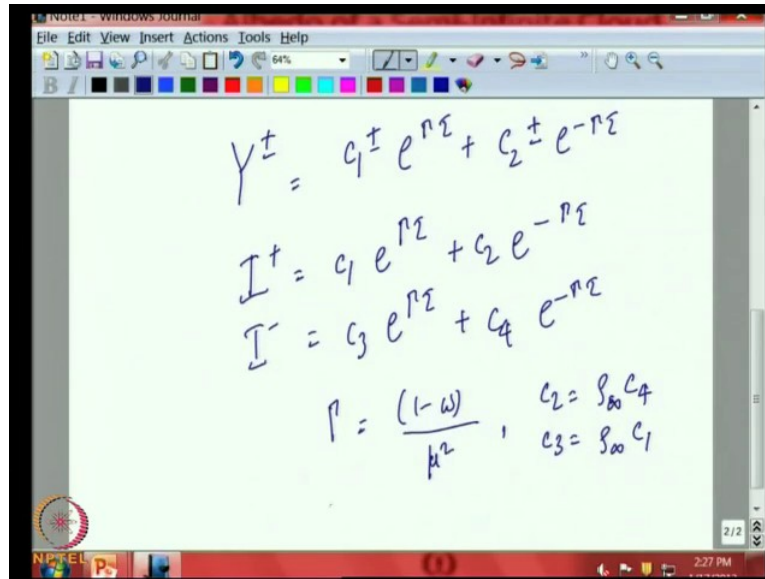 Note1 - Windows Journal
Albedo of a Semi-Infinite Cloud
File Edit View Insert Actions Tools Help
64%
B I
Y± = C₁± e^Γτ + C₂± e^-Γτ
I⁺ = C₁ e^Γτ + C₂ e^-Γτ
I⁻ = C₃ e^Γτ + C₄ e^-Γτ
Γ = (1-ω)/μ² , C₂ = ρ∞ C₄
C₃ = ρ∞ C₁
2/2
NPTEL
2:27 PM